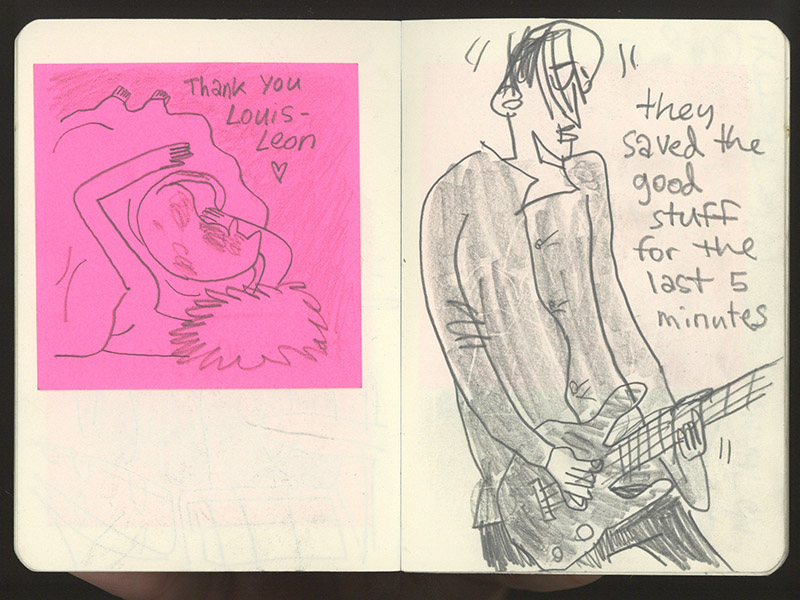 Thank You
Louis-
Leon
they
saved the
good
stuff
for the
last 5
minutes